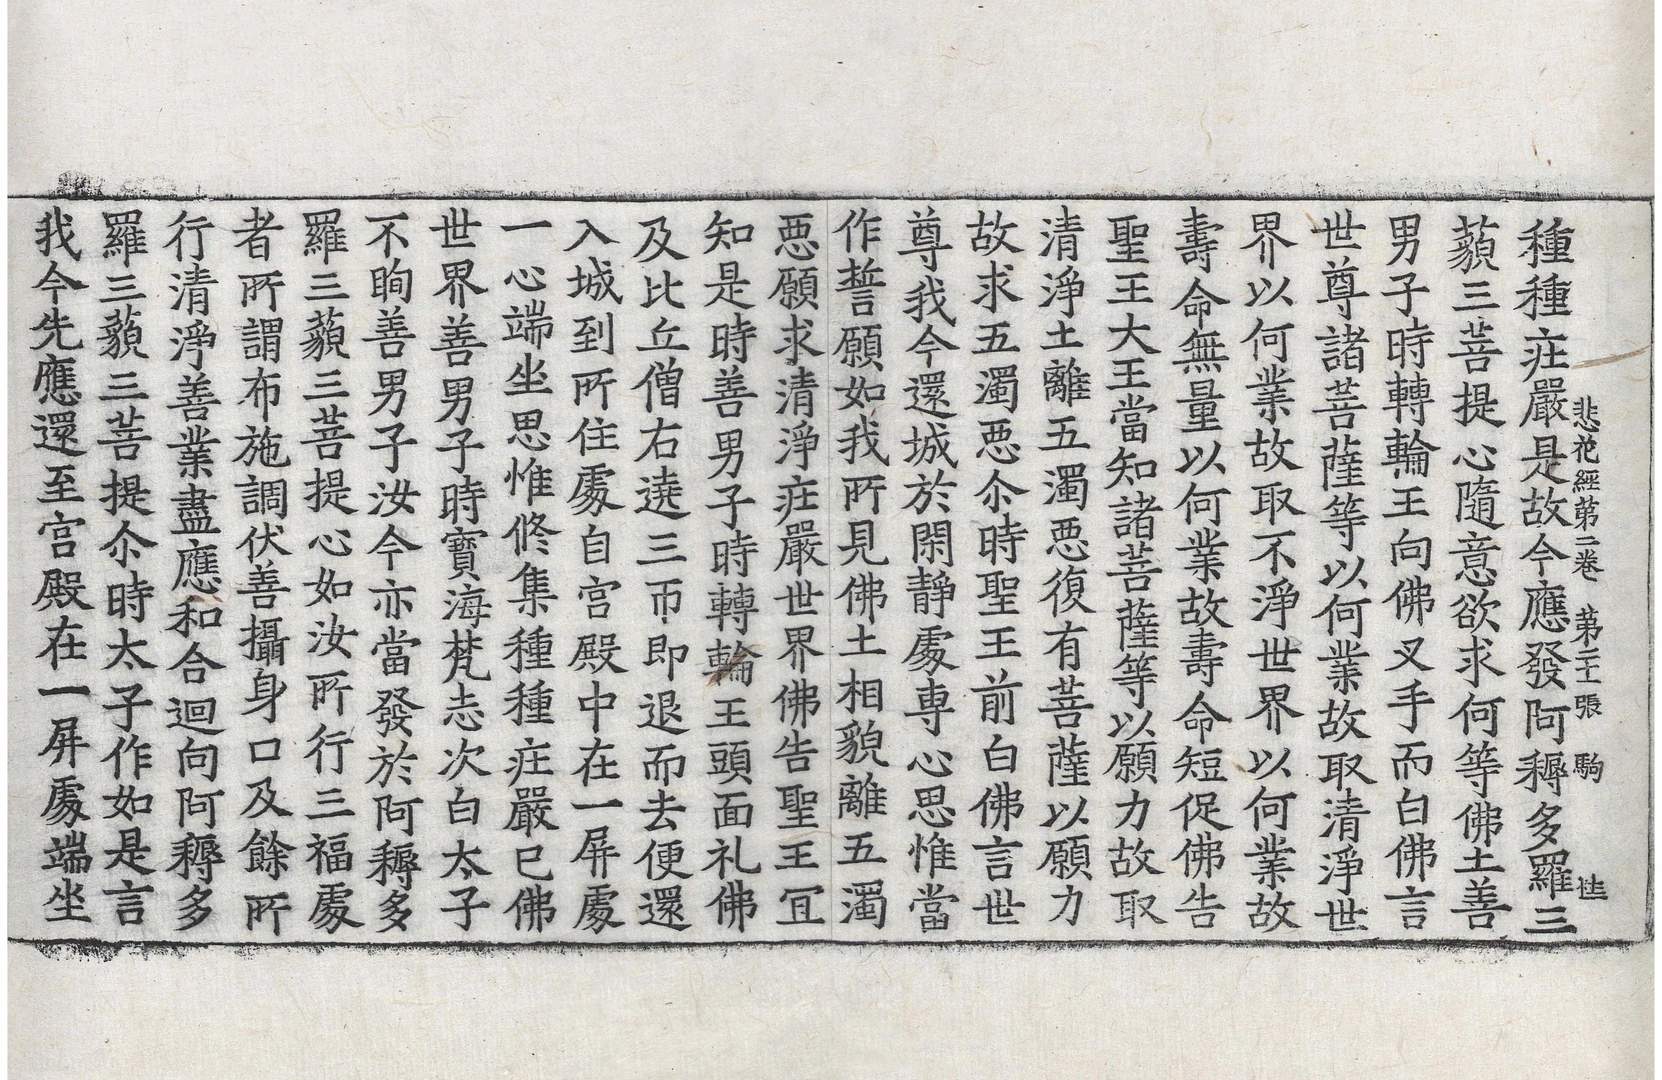 悲花經第二卷　第二十張　駒
種種庄嚴是故今應發阿耨多羅三
藐三菩提心隨意欲求何等佛土善
男子時轉輪王向佛叉手而白佛言
世尊諸菩薩等以何業故取清淨世
界以何業故取不淨世界以何業故
壽命無量以何業故壽命短促佛告
聖王大王當知諸菩薩等以願力故取
清淨土離五濁惡復有菩薩以願力
故求五濁惡尒時聖王前白佛言世
尊我今還城於閑靜處專心思惟當
作誓願如我所見佛土相貌離五濁
惡願求清淨庄嚴世界佛告聖王冝
知是時善男子時轉輪王頭面礼佛
及比丘僧右遶三帀即退而去便還
入城到所住處自宮殿中在一屏處
一心端坐思惟修集種種庄嚴已佛
世界善男子時寶海梵志次白太子
不眴善男子汝今亦當發於阿耨多
羅三藐三菩提心如汝所行三福處
者所謂布施調伏善攝身口及餘所
行清淨善業盡應和合迴向阿耨多
羅三藐三菩提尒時太子作如是言
我今先應還至宮殿在一屏處端坐